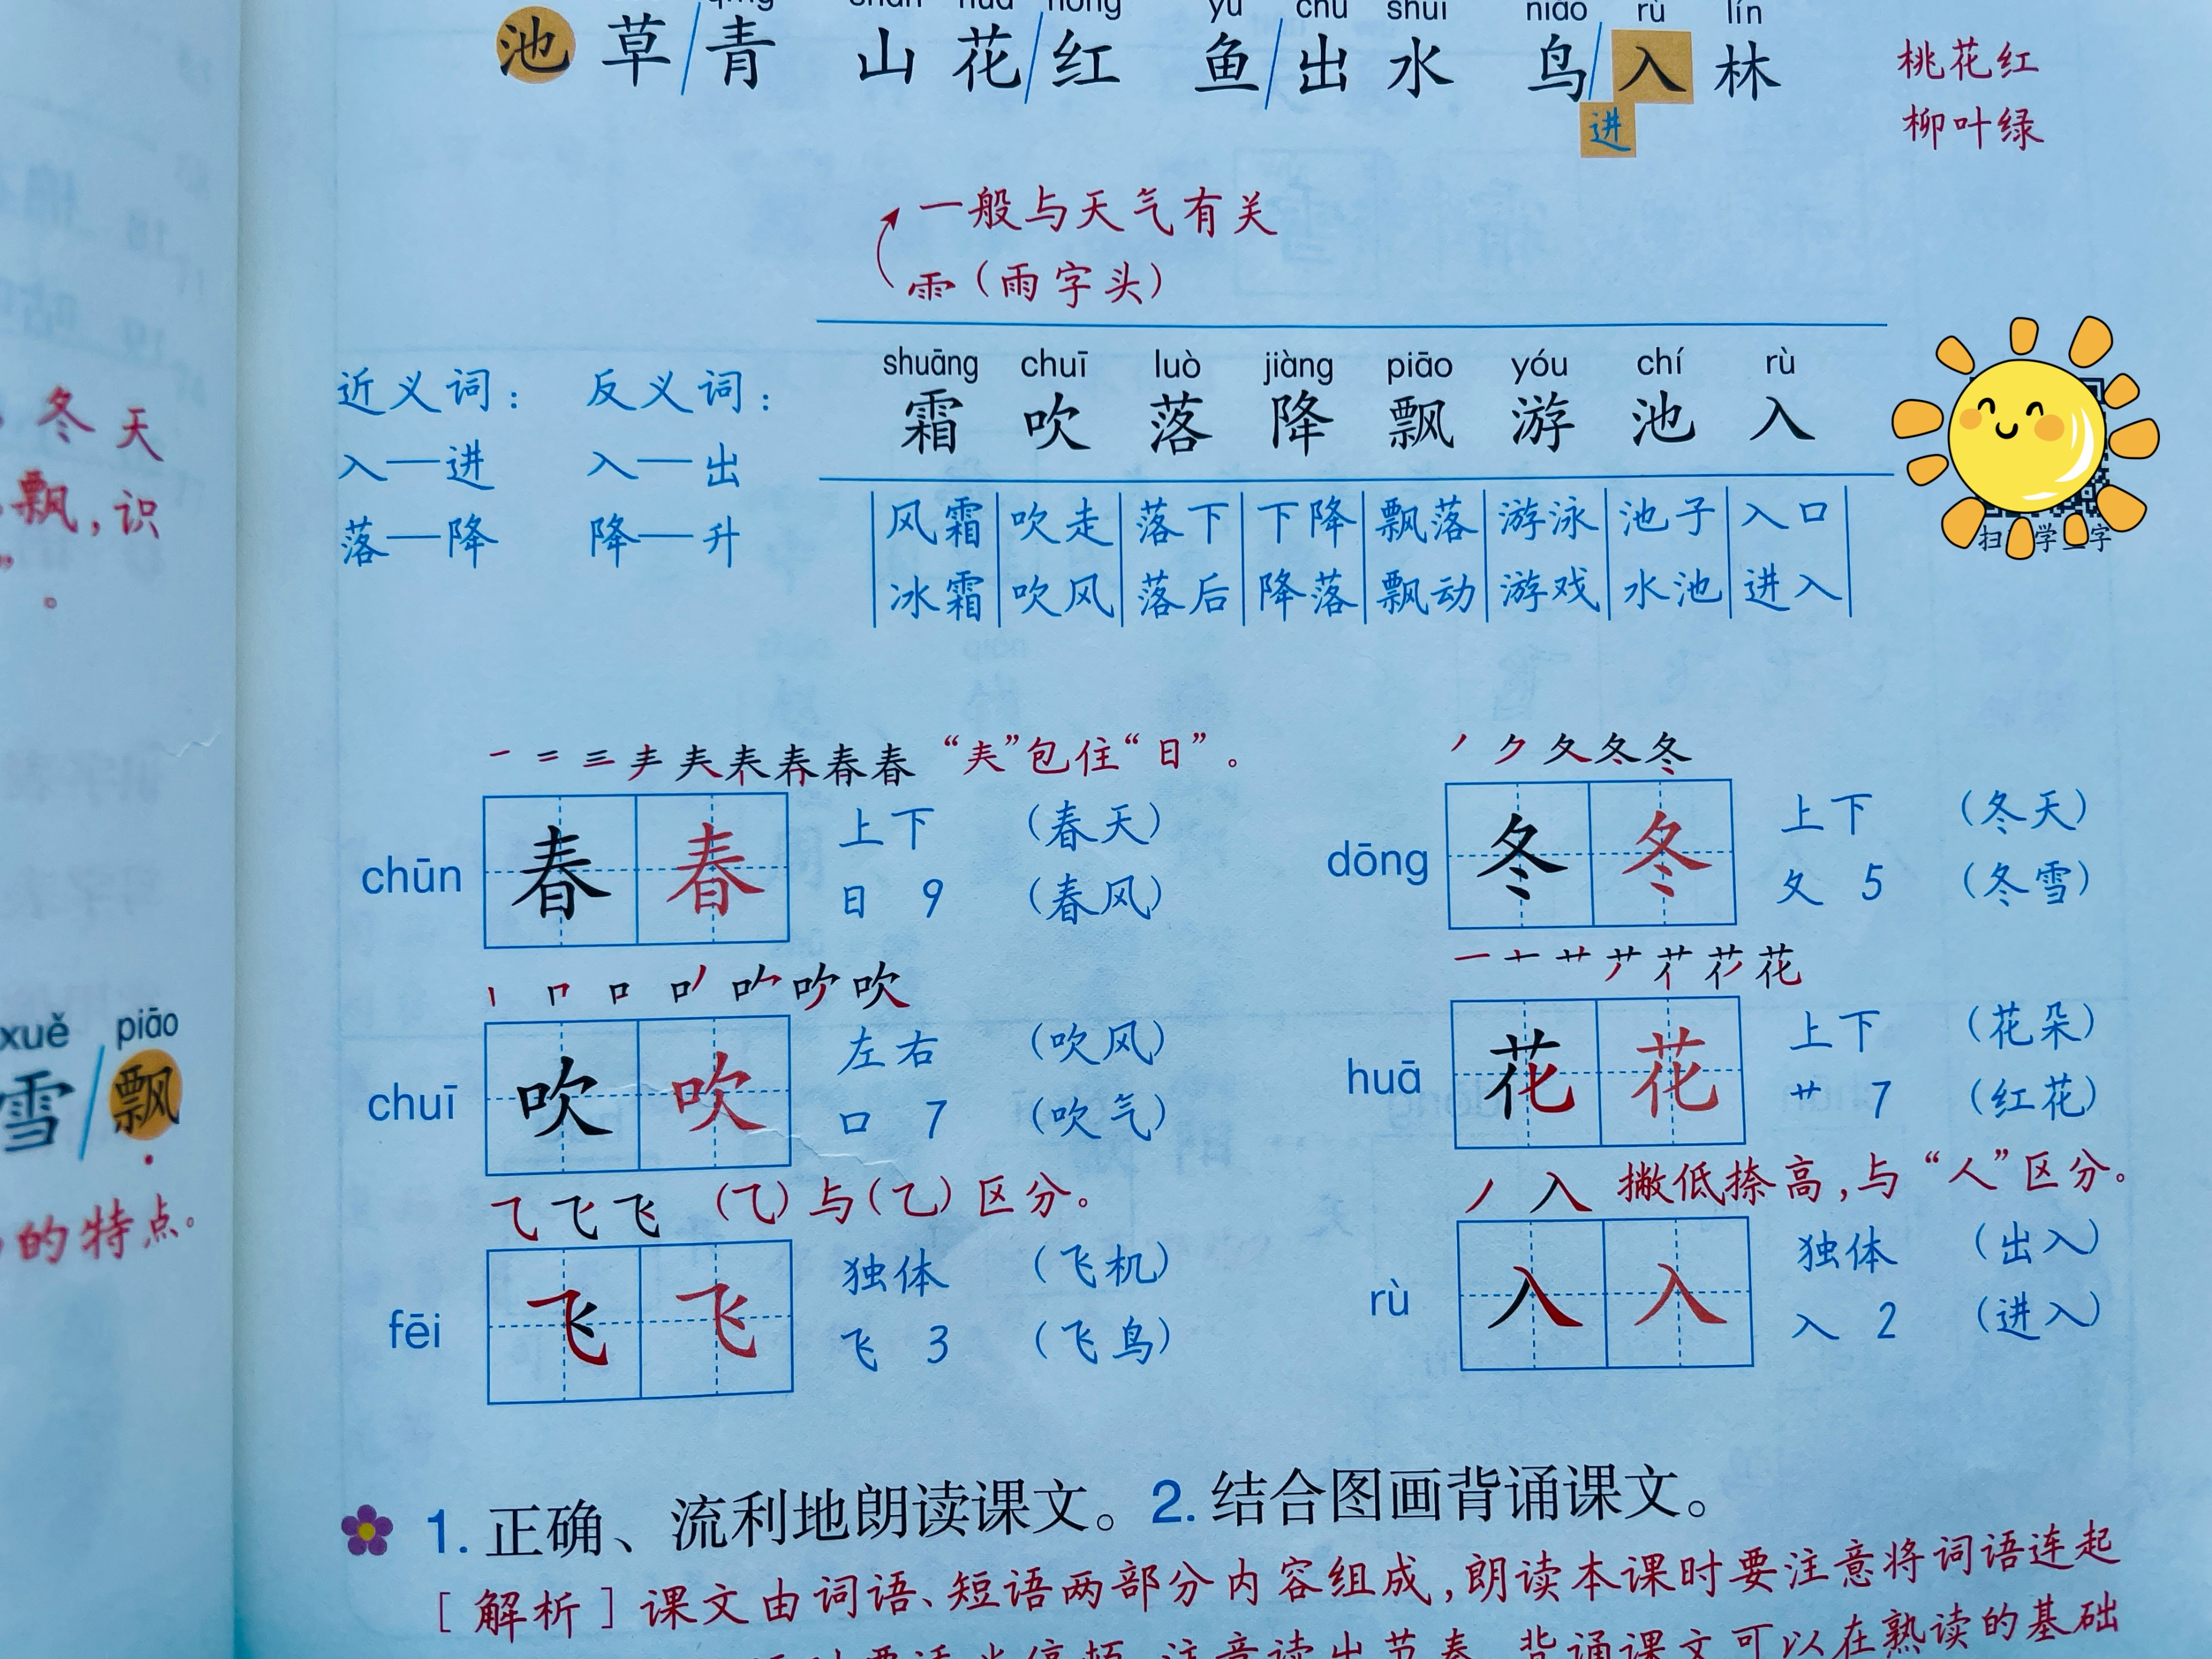 shān huā hóng yú chū shuǐ niǎo rù lín
池草/青 山花/红 鱼/出水 鸟/入林
进
桃花红
柳叶绿
一般与天气有关
⻗（雨字头）
近义词： 反义词：
入—进 入—出
落—降 降—升
shuāng chuī luò jiàng piāo yóu chí rù
霜 吹 落 降 飘 游 池 入
风霜 吹走 落下 下降 飘落 游泳 池子 入口
冰霜 吹风 落后 降落 飘动 游戏 水池 进入
冬天
飘，识
”
。
xuě piāo
雪/飘
的特点。
“𡗗”包住“日”。
chūn 春 春 上下 （春天）
日 9 （春风）
dōng 冬 冬 上下 （冬天）
夂 5 （冬雪）
chuī 吹 吹 左右 （吹风）
口 7 （吹气）
huā 花 花 上下 （花朵）
艹 7 （红花）
（⺄）与（乙）区分。
fēi 飞 飞 独体 （飞机）
飞 3 （飞鸟）
撇低捺高，与“人”区分。
rù 入 入 独体 （出入）
入 2 （进入）
1. 正确、流利地朗读课文。2. 结合图画背诵课文。
［解析］课文由词语、短语两部分内容组成，朗读本课时要注意将词语连起
注意读出节奏。背诵课文可以在熟读的基础